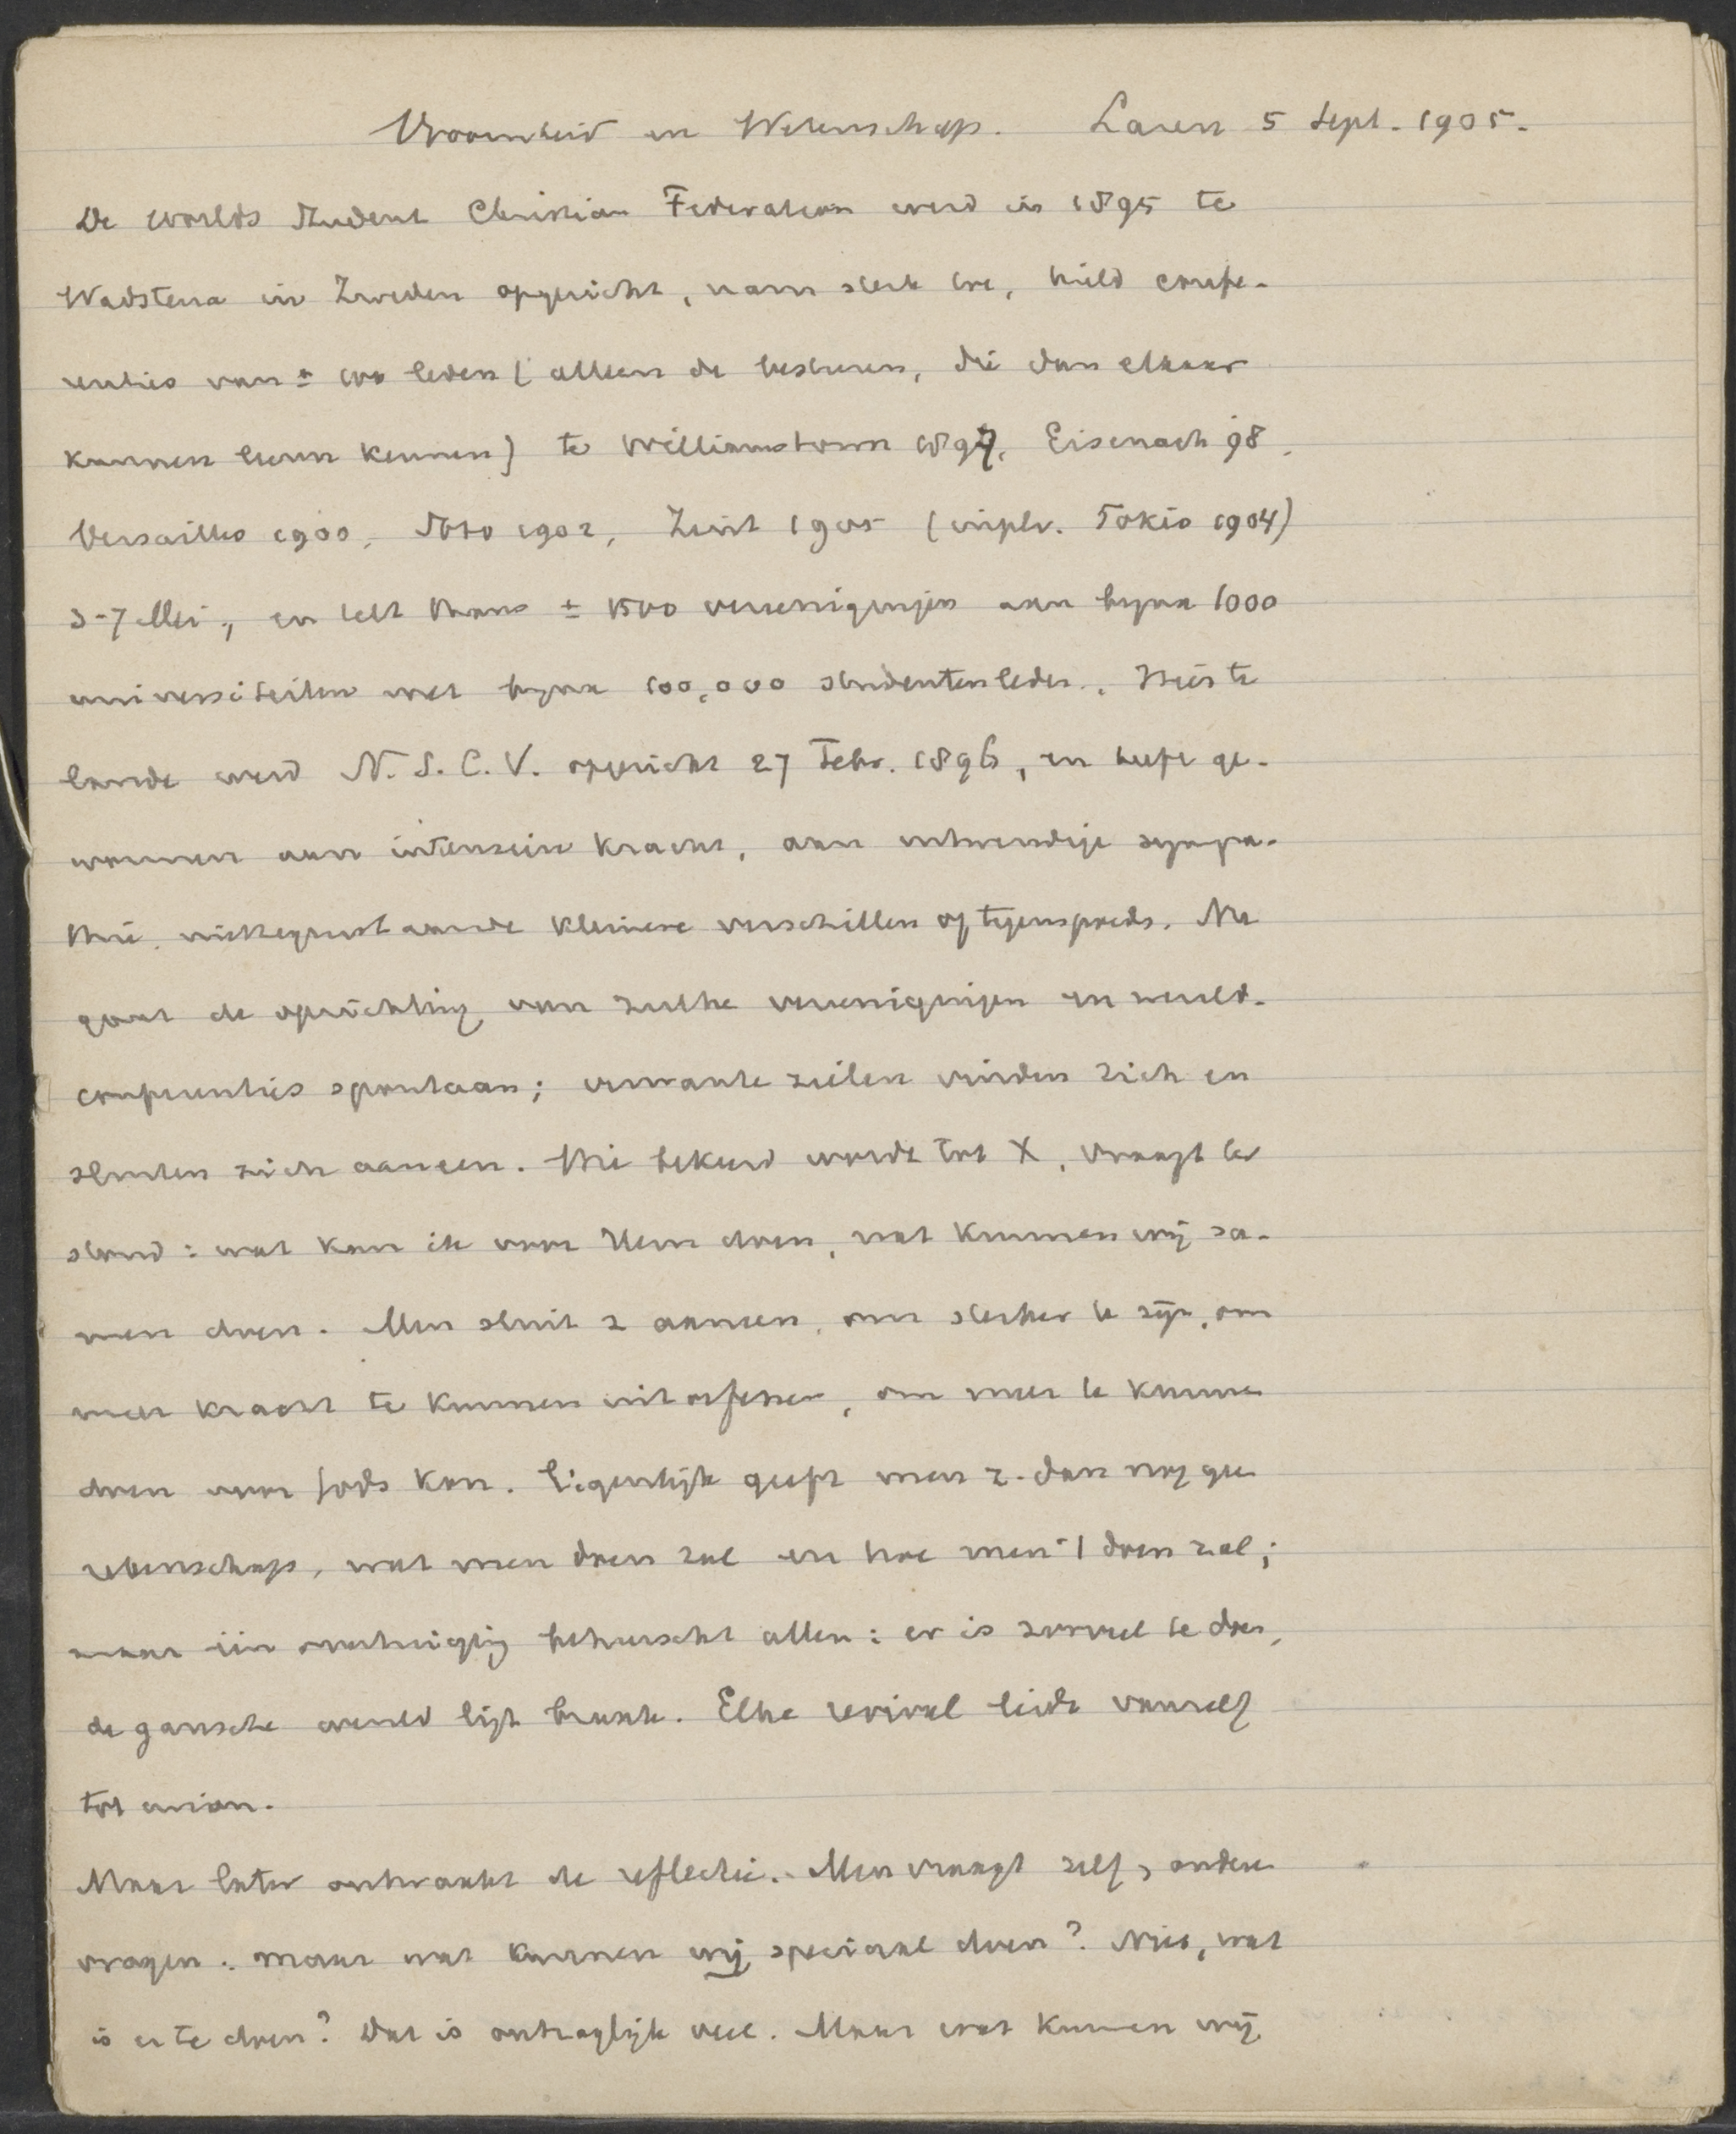 Vroomheid en Wetenschap. Laren 5 Sept. 1905.
De Worlds Student Christian Federation werd in 1895 te
Wadstena in Zweden opgericht, nam sterk toe, hield confe-
renties van ± 100 leden (alleen de besturen, die dan elkaar
kunnen leeren kennen) te Williamstown 1897, Eisenach 98,
Versailles 1900, Sorö 1902, Zeist 1905 (in plv. Tokio 1904)
3-7 Mei, en telt thans ± 1500 vereenigingen aan bijna 1000
universiteiten met bijna 100,000 studentenleden. Hier te
lande werd N.S.C.V. opgericht 27 Febr. 1896, en heeft ge-
wonnen aan intensieve kracht, aan uitwendige sympa-
thie, niettegenstaande kleinere verschillen of tegenspoeds. Nu
gaat de oprichting van zulke vereenigingen en wereld-
conferenties spontaan; verwante zielen vinden zich en
sluiten zich aaneen. Wie bekeerd wordt tot X, vraagt ter
stond: wat kan ik voor Hem doen, wat kunnen wij sa-
men doen. Men sluit z aaneen, om sterker te zijn, om
meer kracht te kunnen uitoefenen, om meer te kunnen
doen voor Gods Kon. Eigenlijk geeft men z. dan nog geen
rekenschap, wat men doen zal en hoe men 't doen zal;
maar één overtuiging beheerscht allen: er is zooveel te doen,
de gansche wereld ligt braak. Elke revival leidt vanzelf
tot union.
Maar later ontwaakt de reflectie. Men vraagt zelf, andere
vragen: maar wat kunnen wij speciaal doen? Niet, wat
is er te doen? Dat is ontzaglijk veel. Maar wat kunnen wij